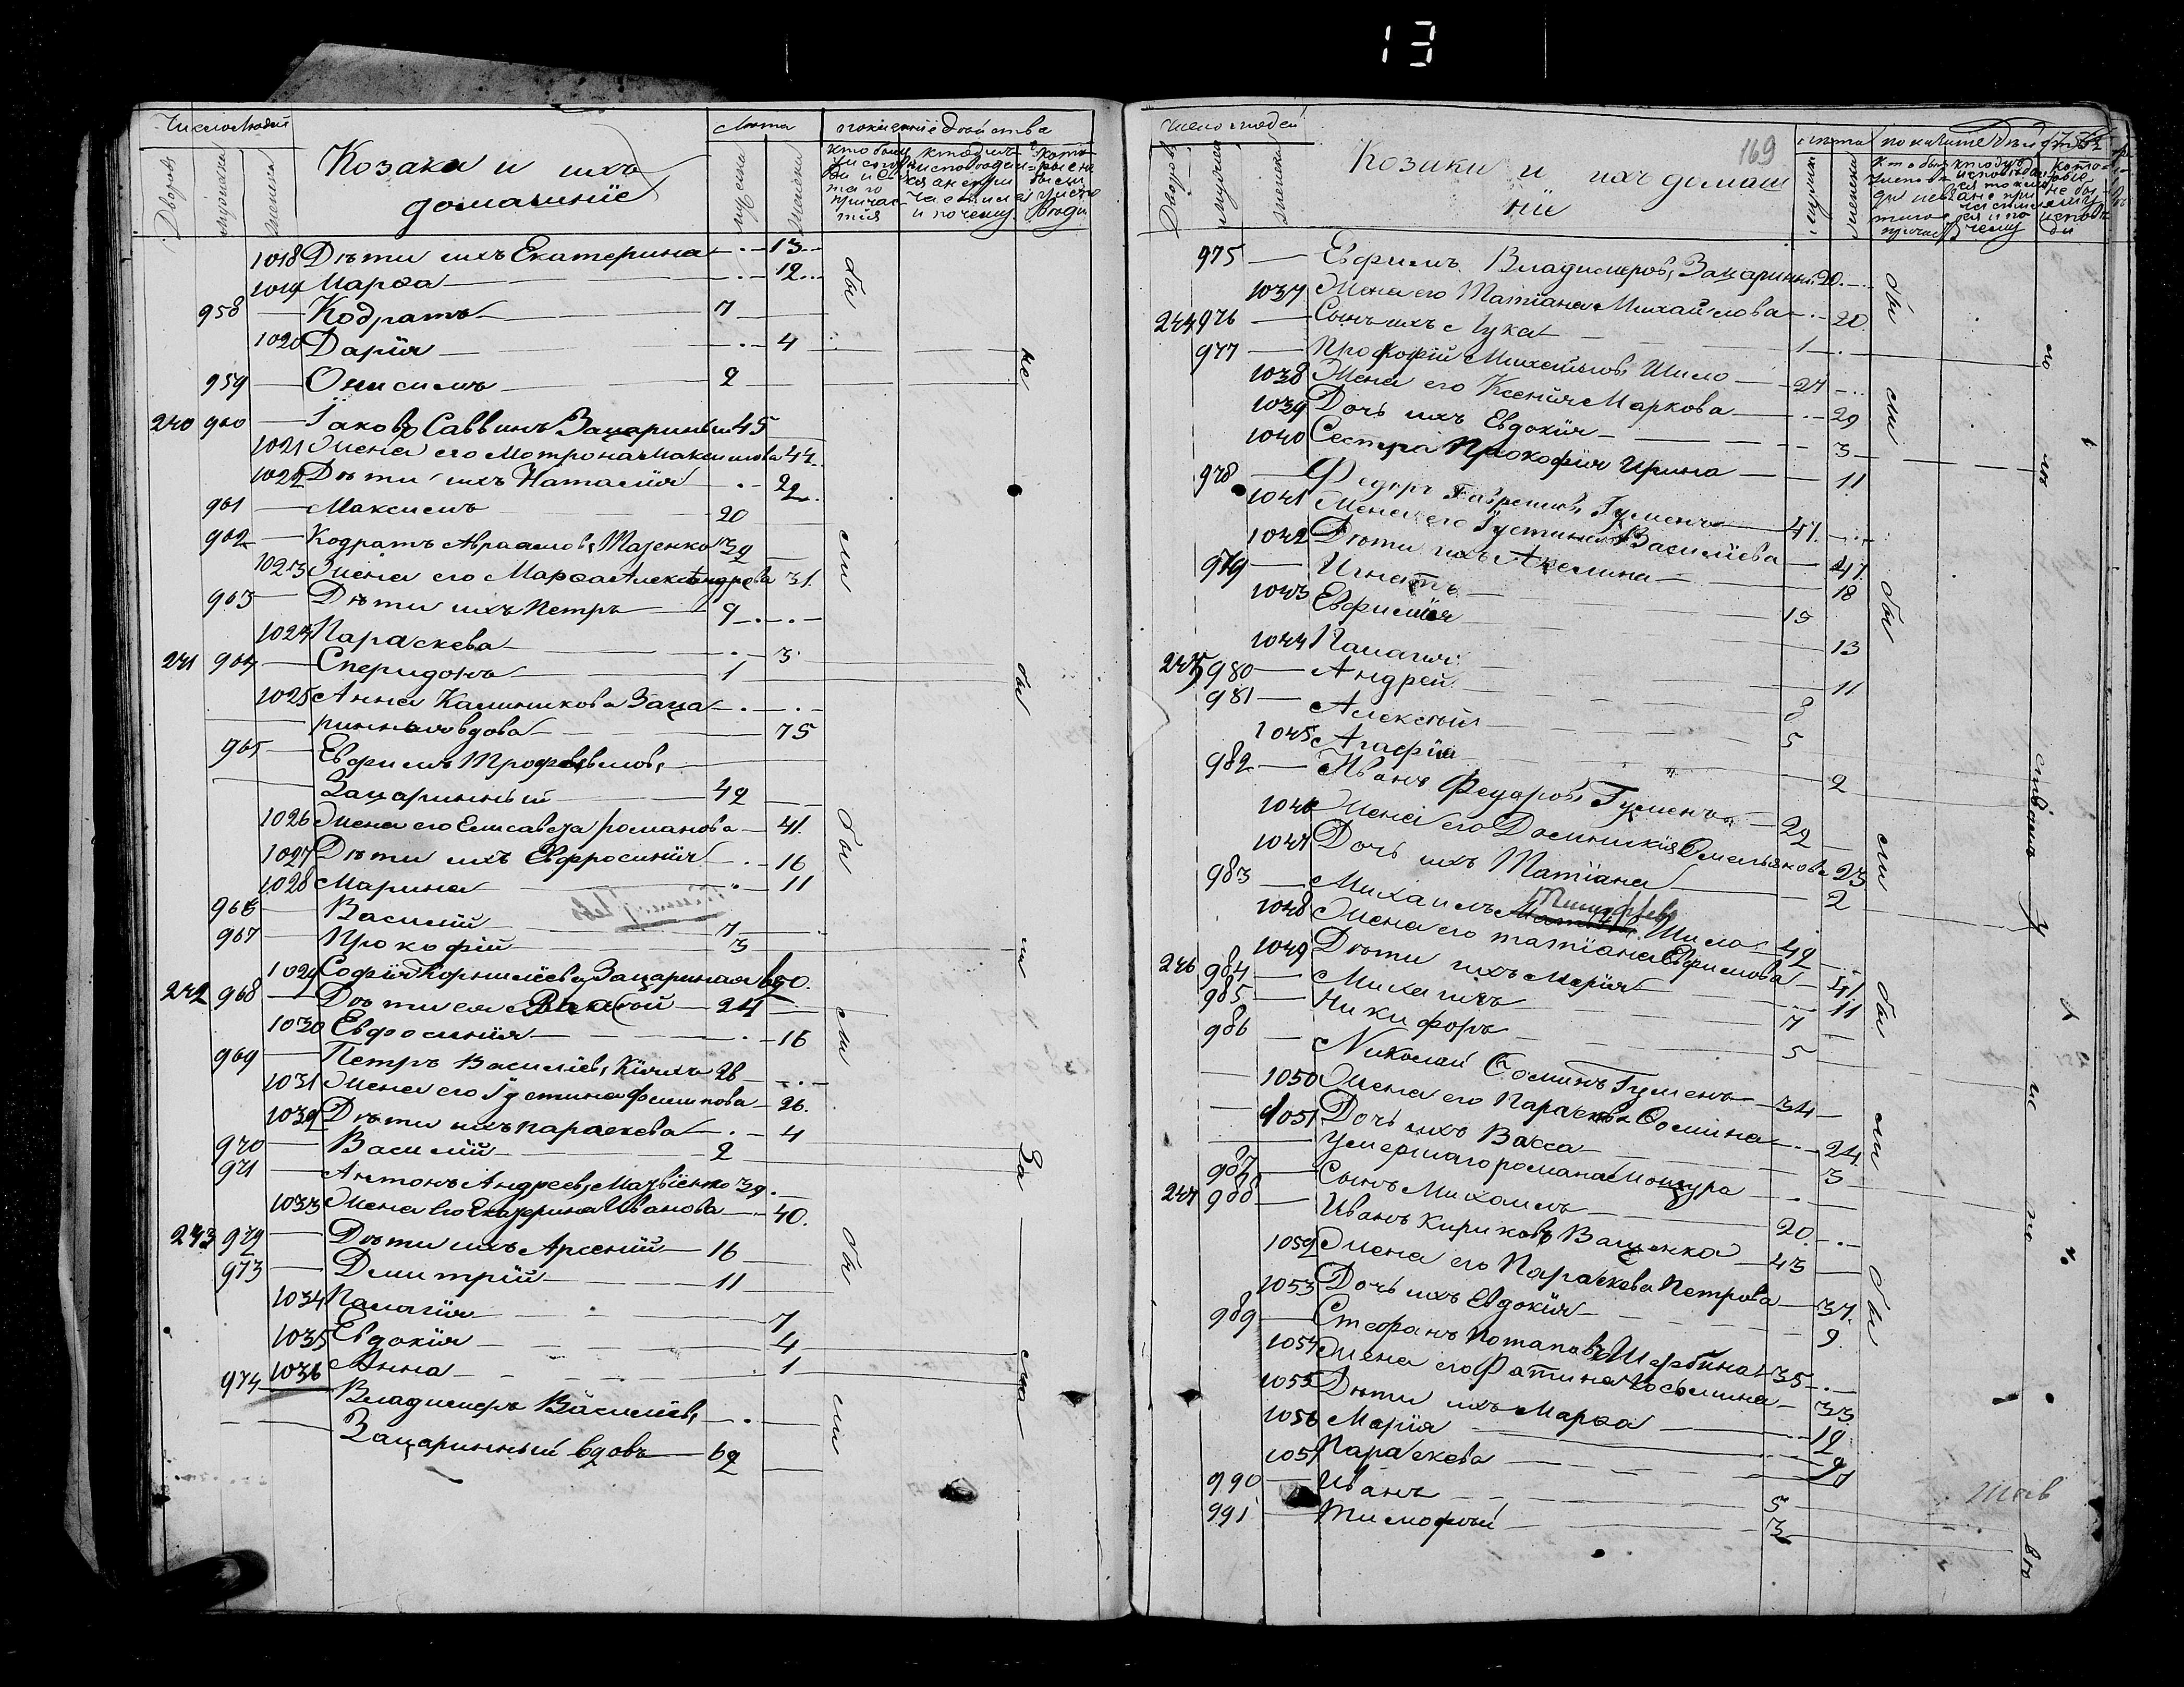 13
Число людей
Дворовъ
мужеска
женска
Козаки и ихъ
домашніе
Лѣта
мужеска
женска
покаяніе двойства
1018 Дѣти ихъ Екатерина 13
1019 Марѳа 12
958 Кодратъ 7
1020 Дарія 4
959 Онисимъ 2
240 960 Іаковъ Саввинъ Зацаринный 45
1021 Жена его Мотрона Максимова 44
1022 Дѣти ихъ Наталія 22
961 Максимъ 20
962 Кодратъ Авраамовъ 32
1023 Жена его Марѳа Александрова 31
963 Дѣти ихъ Петръ 9
1024 Параскева 3
241 964 Сперидонъ 1
1025 Анна Калиникова Заца
ринная вдова 75
965 Евфимъ
Зацаринный 42
1026 Жена его Елисавета романова 41
1027 Дѣти ихъ Евфросинія 16
1028 Марина 11
966 Василій 7
967 Прокофій 3
1029 Софія Корниліева Зацариная
242 968 Дѣти ея 24
1030 Евфросинія 16
969 Петръ Василіевъ 28
1031 Жена его Густина Филипова 26
1032 Дѣти ихъ параскева 4
970 Василій 2
971 Антонъ Андреевъ 39
1033 Жена его Екатерина Иванова 40
243 972 Дѣти ихъ Арсеній 16
973 Дмитрій 11
1034 Палагія 7
1035 Евдокія 4
1036 Анна 1
974 Владимеръ Василіевъ
Зацаринный вдовъ 62
бы
ли
бы
ли
бы
ли
Число людей
Дворовъ
мужеска
женска
Козаки и ихъ домаш
ніе
169
лѣта
мужеска
женска
975 Евфимъ Владимеровъ Зацаринный 20
1037 Жена его Татіана Михайлова 20
244 976 Сынъ ихъ Лука 1
977 Прокофій Михайловъ Шило 27
1038 Жена его Ксенія Маркова 29
1039 Дочь ихъ Евдокія 3
1040 Сестра Прокофія Ирина 11
978 Федоръ Гавриловъ Гуменъ 47
1041 Жена его Густина Василіева 47
1042 Дѣти ихъ Акелина 18
979 Игнатъ 15
1043 Евфимія 13
1044 Палагія 11
245 980 Андрей 8
981 Алексѣй 5
1045 Агафія 2
982 Иванъ Федоровъ Гуменъ 22
1046 Жена его Домникія Омельянова 23
1047 Дочь ихъ Татіана 2
983 Михаилъ Тимофѣевъ Шило 42
1048 Жена его татіана Евфимова 41
1049 Дѣти ихъ Марія 11
246 984 Михаилъ 7
985 Никифоръ 5
986 Николай Ѳоминъ Гуменъ 34
1050 Жена его Параскева Ѳомина 24
1051 Дочь ихъ Васса 3
умершаго романа
987 Сынъ Михаилъ 20
247 988 Иванъ Кириковъ Ващенко 43
1052 Жена его Параскева Петрова 37
1053 Дочь ихъ Евдокія 9
989 Стефанъ Потаповъ Щербина 35
1054 Жена его Фатина Косьмина 33
1055 Дѣти ихъ Марѳа 12
1056 Марія 9
1057 Параскева
990 Иванъ 5
991 Тимофѣй 3
бы
ли
бы
ли
бы
ли
бы